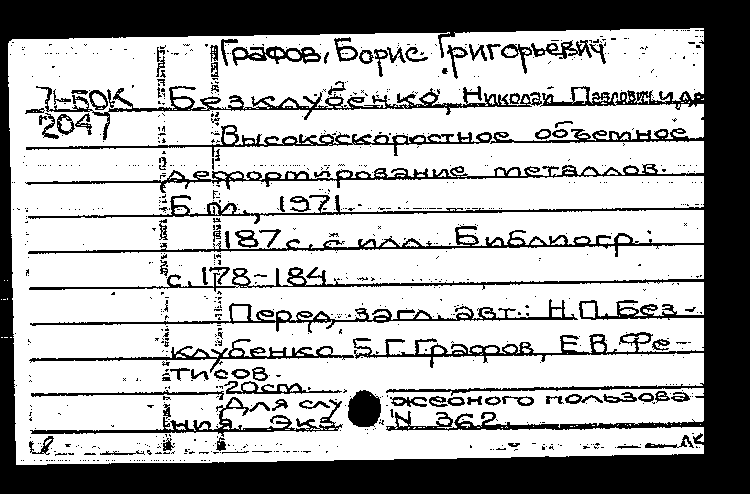 Графов, Борис Григорьевич
71-БОК Безклубенко, Николай Павлович и др
2047
Высокоскоростное объемное
деформирование металлов.
Б.м., 1971.
187 с. с илл. Библиогр.:
с. 178-184.
Перед загл. авт.: Н.П. Без-
клубенко Б.Г. Графов, Е.В. Фе-
тисов.
20 см.
Для служебного пользова-
ния. Экз. N 362.
8 ЛК